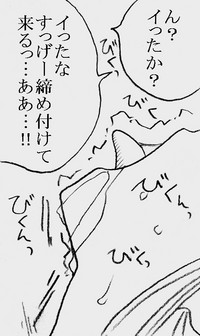 ん?
イったか?
イったな
すっげー締め付けて
来るっ…ああ…!!
びくんっ
びくんっ
びくっ
びくんっ